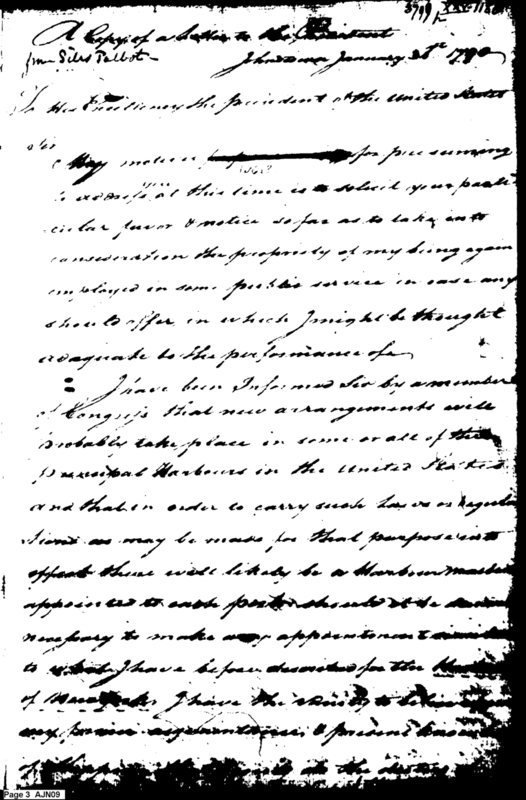 A Copy of a letter to the President
from Silas Talbot
Johnstown January 26th 1790
To His Excellency the President of the United States
Sir
My motive for presuming
to address you at this time is to solicit your parti
cular favor & notice so far as to take into
consideration the propriety of my being again
employed in some public service in case any
should offer in which I might be thought
adaquate to the performance of.
I have been Informed Sir by a member
of Congress that new arrangements will
probably take place in some or all of the
principal Harbours in the United States
and that in order to carry such Laws or Regula
tions as may be made for that purpose into
effect there will likely be a Harbour master
appointed to each port should it be
necessary to make any appointment
to I have before described for the
of New York, I have the vanity to believe
my former & present
of the in the
Page 3 AJN09